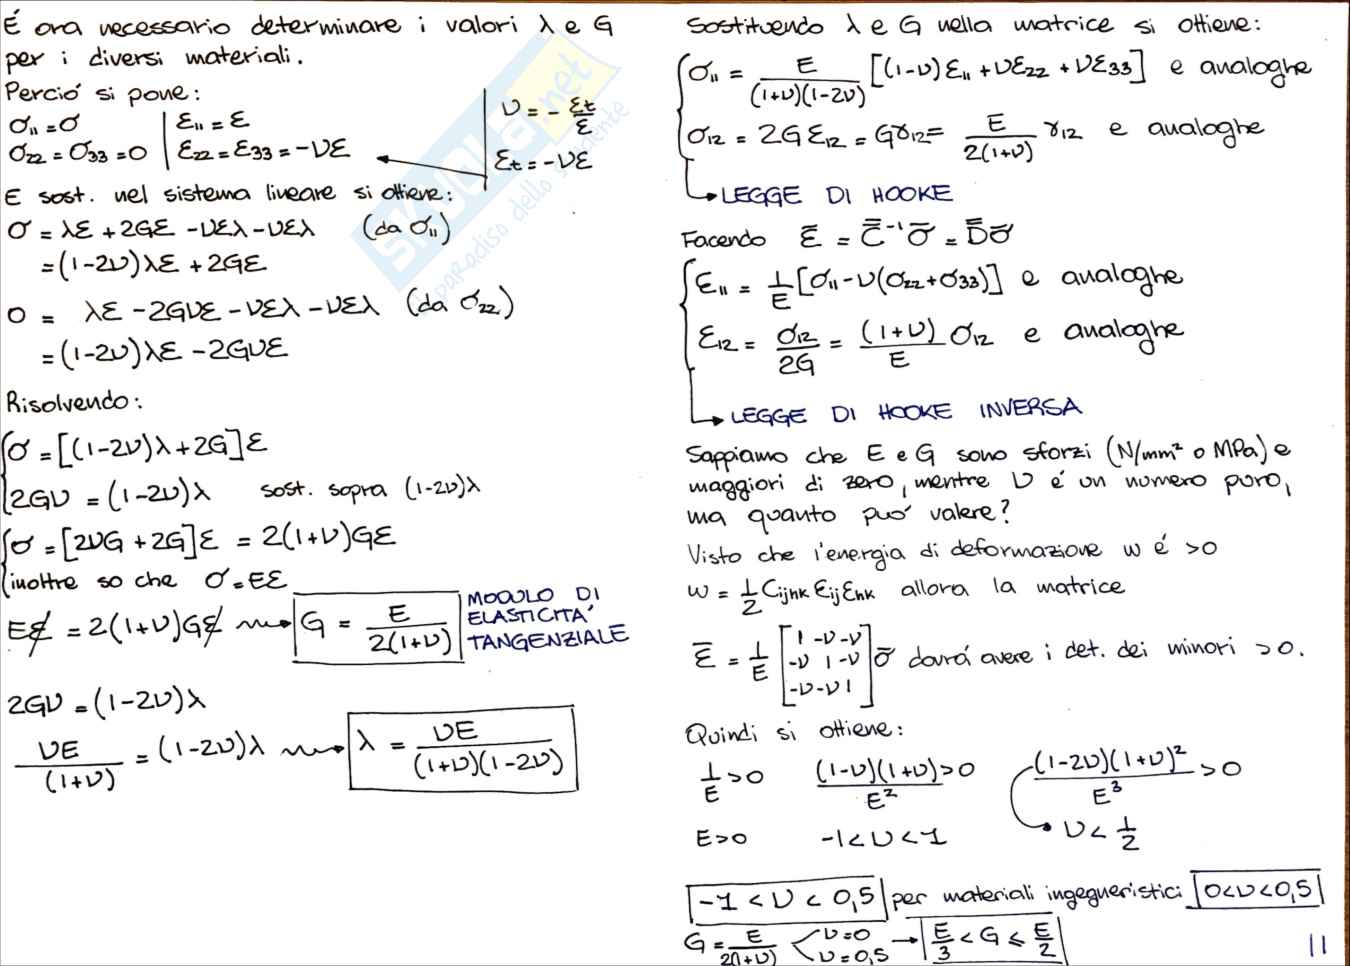 É ora necessario determinare i valori λ e G
per i diversi materiali.
Perció si pone:
σ₁₁ = σ | ε₁₁ = ε
σ₂₂ = σ₃₃ = 0 | ε₂₂ = ε₃₃ = -νε
ν = - εt/ε
εt = -νε
E sost. nel sistema lineare si ottiene:
σ = λε + 2Gε - νελ - νελ (da σ₁₁)
= (1-2ν)λε + 2Gε
0 = λε - 2Gνε - νελ - νελ (da σ₂₂)
= (1-2ν)λε - 2Gνε
Risolvendo:
σ = [(1-2ν)λ + 2G]ε
2Gν = (1-2ν)λ sost. sopra (1-2ν)λ
σ = [2νG + 2G]ε = 2(1+ν)Gε
inoltre so che σ = Eε
Eε = 2(1+ν)Gε → G = E/2(1+ν) MODULO DI
ELASTICITA'
TANGENZIALE
2Gν = (1-2ν)λ
νE/(1+ν) = (1-2ν)λ → λ = νE/(1+ν)(1-2ν)
Sostituendo λ e G nella matrice si ottiene:
σ₁₁ = E/(1+ν)(1-2ν) [(1-ν)ε₁₁ + νε₂₂ + νε₃₃] e analoghe
σ₁₂ = 2Gε₁₂ = Gγ₁₂ = E/2(1+ν) γ₁₂ e analoghe
→ LEGGE DI HOOKE
Facendo ε̄ = C̿⁻¹σ̄ = D̿σ̄
ε₁₁ = 1/E [σ₁₁ - ν(σ₂₂ + σ₃₃)] e analoghe
ε₁₂ = σ₁₂/2G = (1+ν)/E σ₁₂ e analoghe
→ LEGGE DI HOOKE INVERSA
Sappiamo che E e G sono sforzi (N/mm² o MPa) e
maggiori di zero, mentre ν é un numero puro,
ma quanto puo' valere?
Visto che l'energia di deformazione w é >0
w = 1/2 Cijhk εij εhk allora la matrice
ε̄ = 1/E [1 -ν -ν
-ν 1 -ν
-ν -ν 1] σ̄ dovrá avere i det. dei minori >0.
Quindi si ottiene:
1/E > 0 (1-ν)(1+ν)/E² > 0 (1-2ν)(1+ν)²/E³ > 0
E > 0 -1 < ν < 1 ν < 1/2
-1 < ν < 0,5 per materiali ingegneristici 0 < ν < 0,5
G = E/2(1+ν) ν = 0 ν = 0,5 → E/3 < G ⩽ E/2
11
skuola.net
il paradiso dello studente